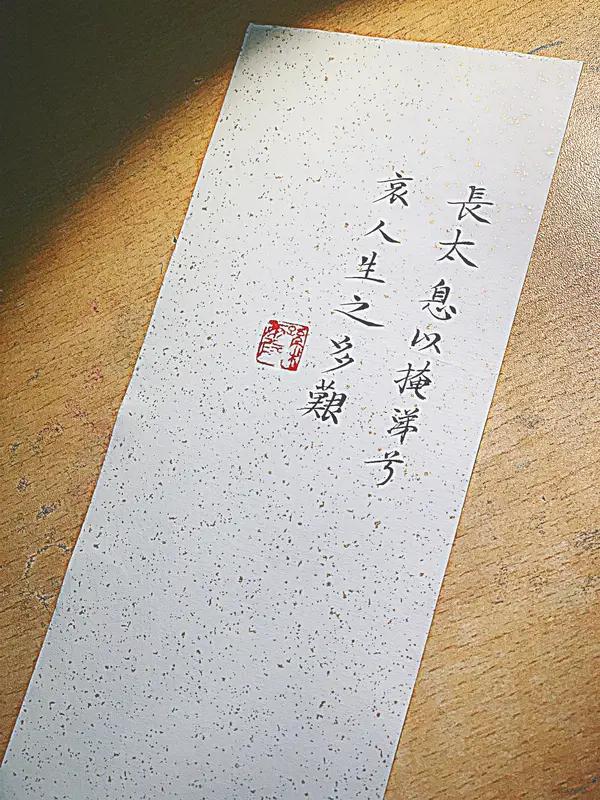 長太息以掩涕兮
哀人生之多艱